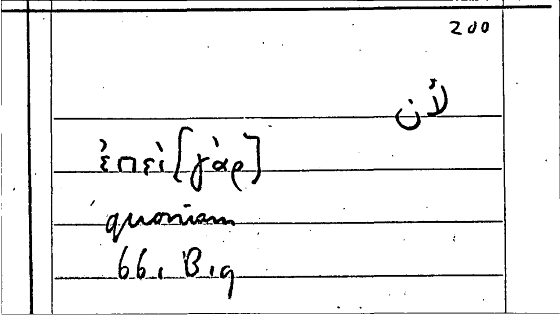 200
لأن
ἐπεὶ [γὰρ]
quoniam
66, B, 9